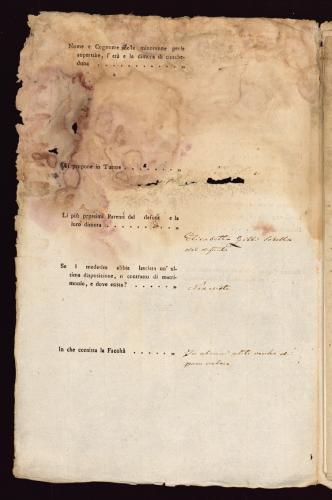 Nome e Cognome della minorenne prole
superstite, l'età e la dimora di ciasche-
duna . . . . . . . . . . „
Chi propone in Tutore . . . . „
Li più prossimi Parenti del defunto e la
loro dimora . . . . . . . . „
Elisabetta Gilli sorella
del defunto
Se il medesimo abbia lasciata un' ul-
tima disposizione, o contratto di matri-
monio, e dove esista? . . . . . „
Non
In che consista la Facoltà . . . . „
In alcuni abiti vecchi di
poco valore